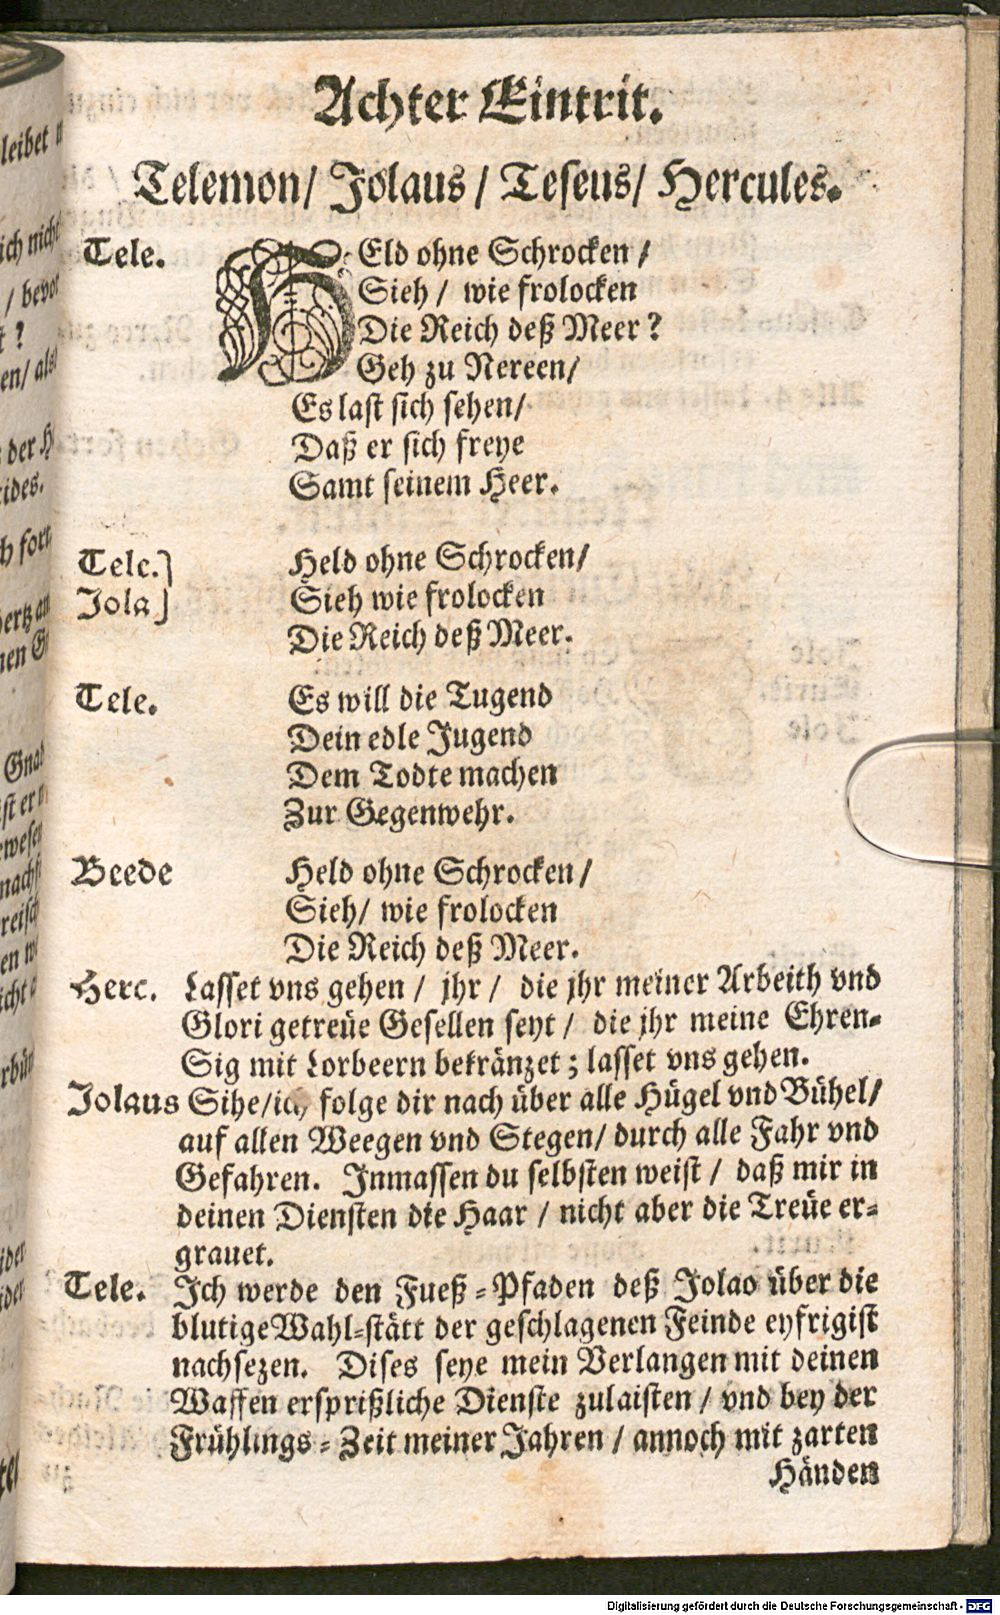 Achter Eintrit.
Telemon/ Jolaus / Teseus/ Hercules.
Tele. HEld ohne Schrocken /
Sieh / wie frolocken
Die Reich deß Meer?
Geh zu Nereen/
Es last sich sehen/
Daß er sich freye
Samt seinem Heer.
Tele.] Held ohne Schrocken/
Jola] Sieh wie frolocken
Die Reich deß Meer.
Tele. Es will die Tugend
Dein edle Jugend
Dem Todte machen
Zur Gegenwehr.
Beede Held ohne Schrocken /
Sieh/ wie frolocken
Die Reich deß Meer.
Herc. Lasset vns gehen / jhr / die jhr meiner Arbeith vnd
Glori getreüe Gesellen seyt / die jhr meine Ehren-
Sig mit Lorbeern bekränzet; lasset vns gehen.
Jolaus Sihe/ich folge dir nach über alle Hügel vnd Bühel/
auf allen Weegen vnd Stegen/ durch alle Fahr vnd
Gefahren. Inmassen du selbsten weist / daß mir in
deinen Diensten die Haar / nicht aber die Treüe er-
grauet.
Tele. Ich werde den Fueß-Pfaden deß Jolao über die
blutige Wahl-stätt der geschlagenen Feinde eyfrigist
nachsezen. Dises seye mein Verlangen mit deinen
Waffen ersprißliche Dienste zulaisten / vnd bey der
Frühlings-Zeit meiner Jahren / annoch mit zarten
Händen
leibet
ich nicht
/ bevor
t ?
en/ als
der H
ides.
h fort
Gnad
ist er
Digitalisierung gefördert durch die Deutsche Forschungsgemeinschaft - DFG